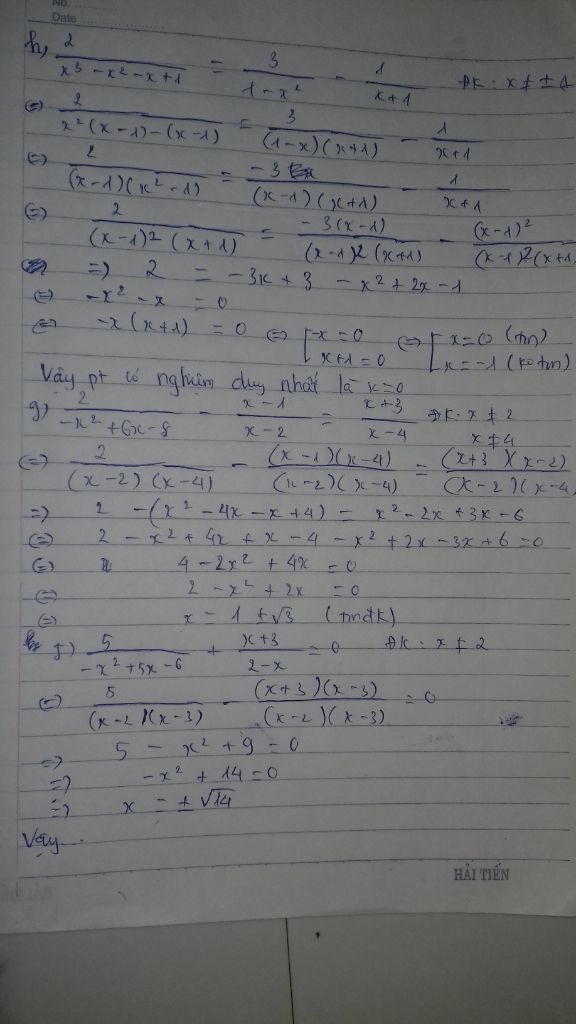 No.
Date
h, 2/(x³ - x² - x + 1) = 3/(1 - x²) - 1/(x+1) ĐK : x ≠ ±1
⇔ 2/(x²(x-1)-(x-1)) = 3/((1-x)(x+1)) - 1/(x+1)
⇔ 2/((x-1)(x²-1)) = -3/((x-1)(x+1)) - 1/(x+1)
⇔ 2/((x-1)²(x+1)) = -3(x-1)/((x-1)²(x+1)) - (x-1)²/((x-1)²(x+1)
⇒ 2 = -3x + 3 - x² + 2x - 1
⇔ -x² - x = 0
⇔ -x(x+1) = 0 ⇔ [-x = 0 x+1 = 0 ⇔ [x = 0 (tm) x = -1 (ko tm)
Vậy pt có nghiệm duy nhất là x=0
g) 2/(-x² + 6x - 8) - (x-1)/(x-2) = (x+3)/(x-4) ĐK: x ≠ 2 x ≠ 4
⇔ 2/((x-2)(x-4)) - (x-1)(x-4)/((x-2)(x-4)) = (x+3)(x-2)/((x-2)(x-4
⇒ 2 - (x² - 4x - x + 4) = x² - 2x + 3x - 6
⇔ 2 - x² + 4x + x - 4 - x² + 2x - 3x + 6 = 0
⇔ 4 - 2x² + 4x = 0
⇔ 2 - x² + 2x = 0
⇔ x = 1 ± √3 (tmđk)
f) 5/(-x² + 5x - 6) + (x+3)/(2-x) = 0 ĐK : x ≠ 2
⇔ 5/((x-2)(x-3)) - (x+3)(x-3)/((x-2)(x-3)) = 0
⇒ 5 - x² + 9 = 0
⇒ -x² + 14 = 0
⇒ x = ±√14
Vậy...
HẢI TIẾN